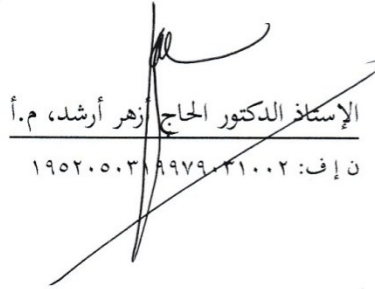 الإستاذ الدكتور الحاج أزهر أرشد، م.أ
ن إ ف: ١٩٥٢٠٥٠٣١٩٩٧٩٠٣١٠٠٢